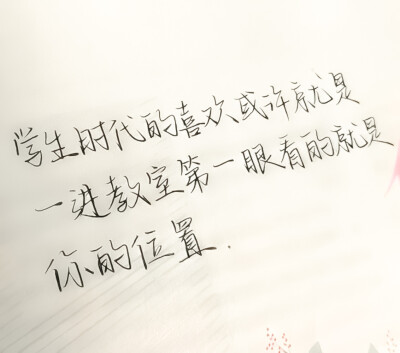 学生时代的喜欢或许就是
一进教室第一眼看的就是
你的位置.